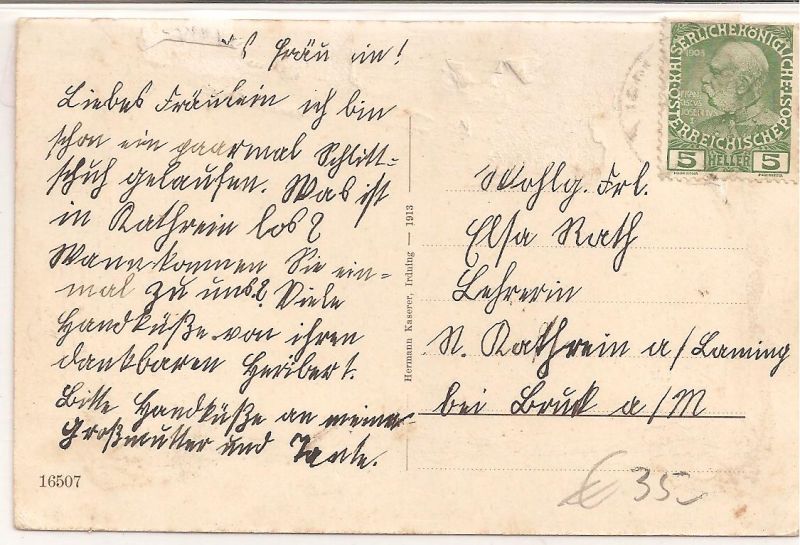 s Fräu in!
Liebes Fräulein ich bin
schon ein paarmal Schlitt=
schuh gelaufen. Was ist
in Kathrein los?
Wann kommen Sie ein=
mal zu uns? Viele
Handküße von ihren
dankbaren Heribert.
Bitte Handküße an meine
Großmutter und Tante.
16507
Hermann Kaserer, Irdning — 1913
K.K. ÖST. KAISERLICHE KÖNIGLICHE ÖSTERREICHISCHE POST
1908
FRAN
CISCUS
JOSEF I
5 HELLER 5
Wohlg. Frl.
Elsa Rath
Lehrerin
St. Kathrein a/Laming
bei Bruck a/M
€ 35-